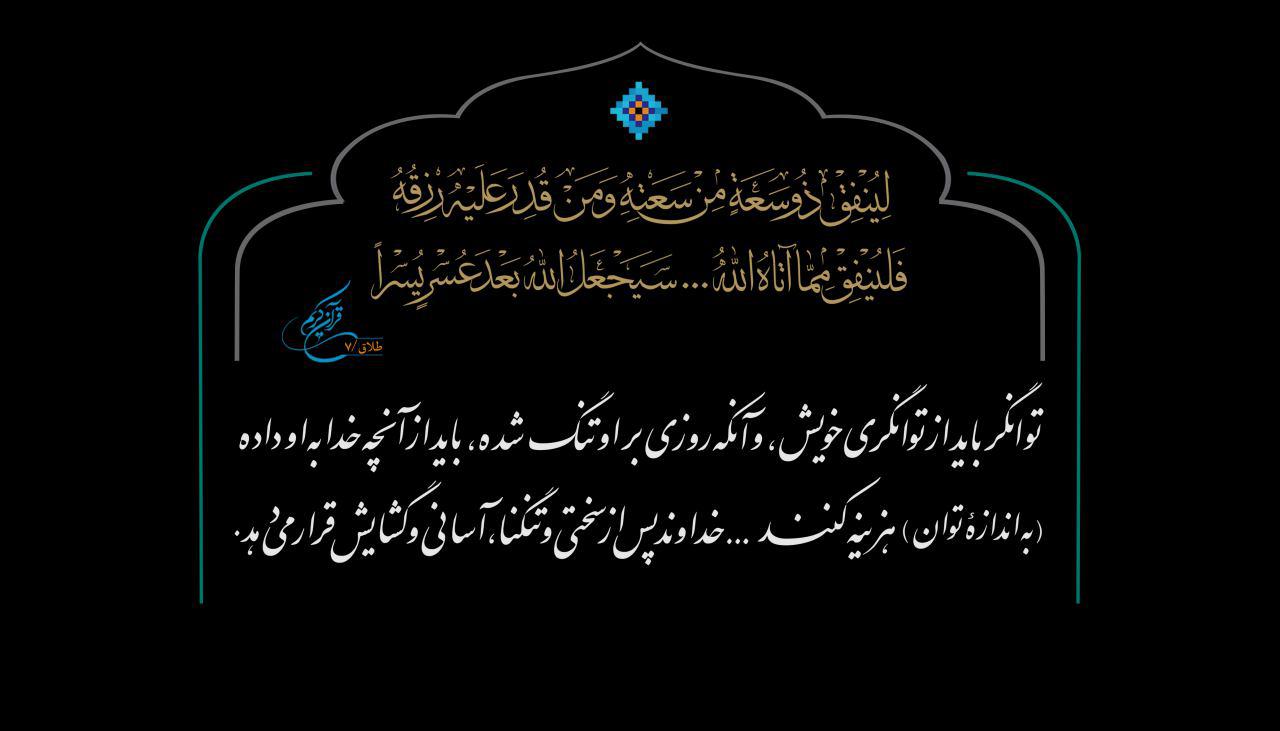 لِيُنفِقْ ذُو سَعَةٍ مِن سَعَتِهِ وَمَن قُدِرَ عَلَيْهِ رِزقُهُ
فَلْيُنفِقْ مِمَّا آتَاهُ اللهُ ... سَيَجْعَلُ اللهُ بَعْدَ عُسْرٍ يُسْرَاً
قرآن کریم
طلاق /۷
توانگر باید از توانگری خویش، و آنکه روزی بر او تنگ شده، باید از آنچه خدا به او داده
(به اندازهٔ توان) هزینه کنند ... خداوند پس از سختی و تنگنا، آسانی و گشایش قرار می‌دهد.